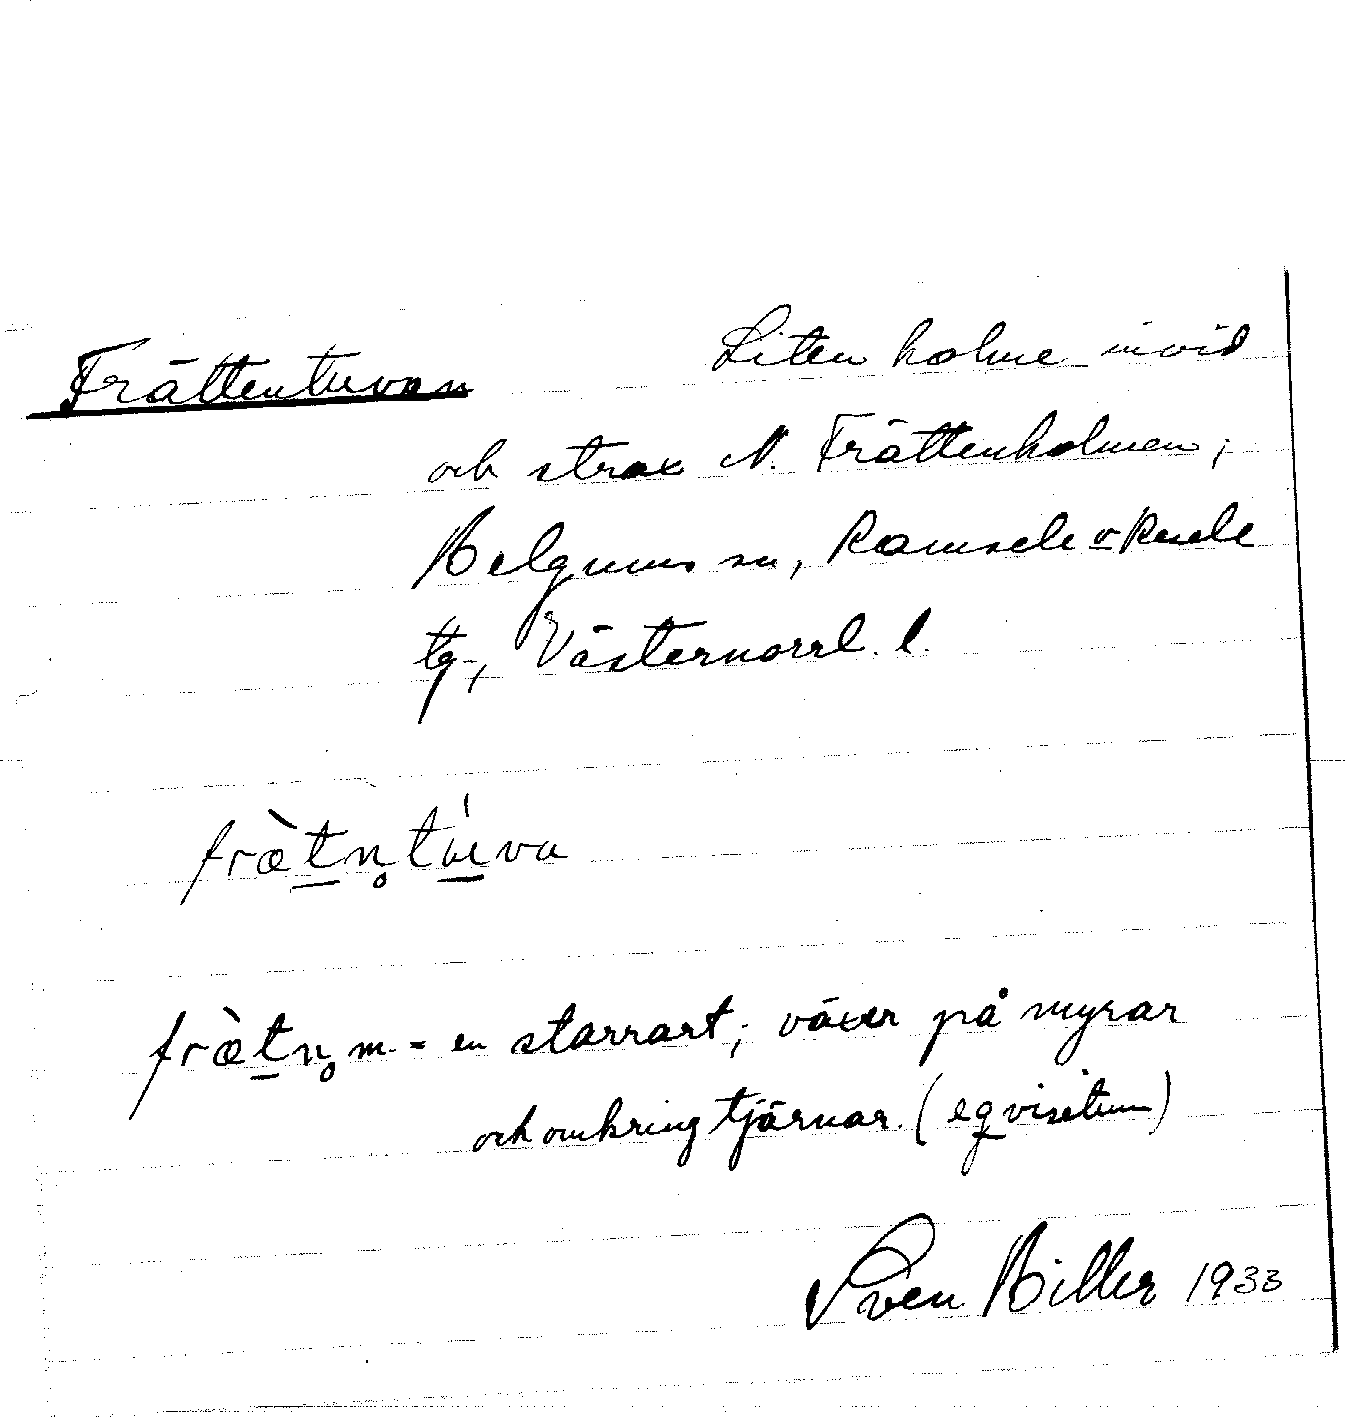 Frättentuvan
Liten holme invid
och strax N. Frättenholmen,
Helgums sn, Ramsele o Resele
tg., Västernorrl. l.
fræ̀t̲n̥tu̲̍va
fræ̀t̲n̥ m. = en starrart; växer på myrar
och omkring tjärnar. (eqvisetum)
Sven Hiller 1933